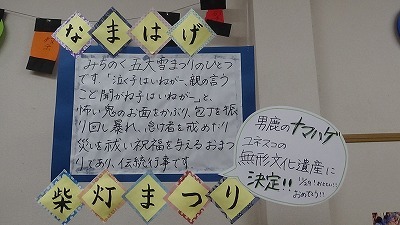 なまはげ
みちのく五大雪まつりのひとつ
です。「泣く子はいねがー、親の言う
こと聞がね子はいねがー」と、
怖い鬼のお面をかぶり、包丁を振
り回し暴れ、怠け者を戒めたり
災いを祓い祝福を与えるおまつ
りであり、伝統行事です。
柴灯まつり
男鹿のナマハゲ
ユネスコの
無形文化遺産に
決定!!
おめでとう!!